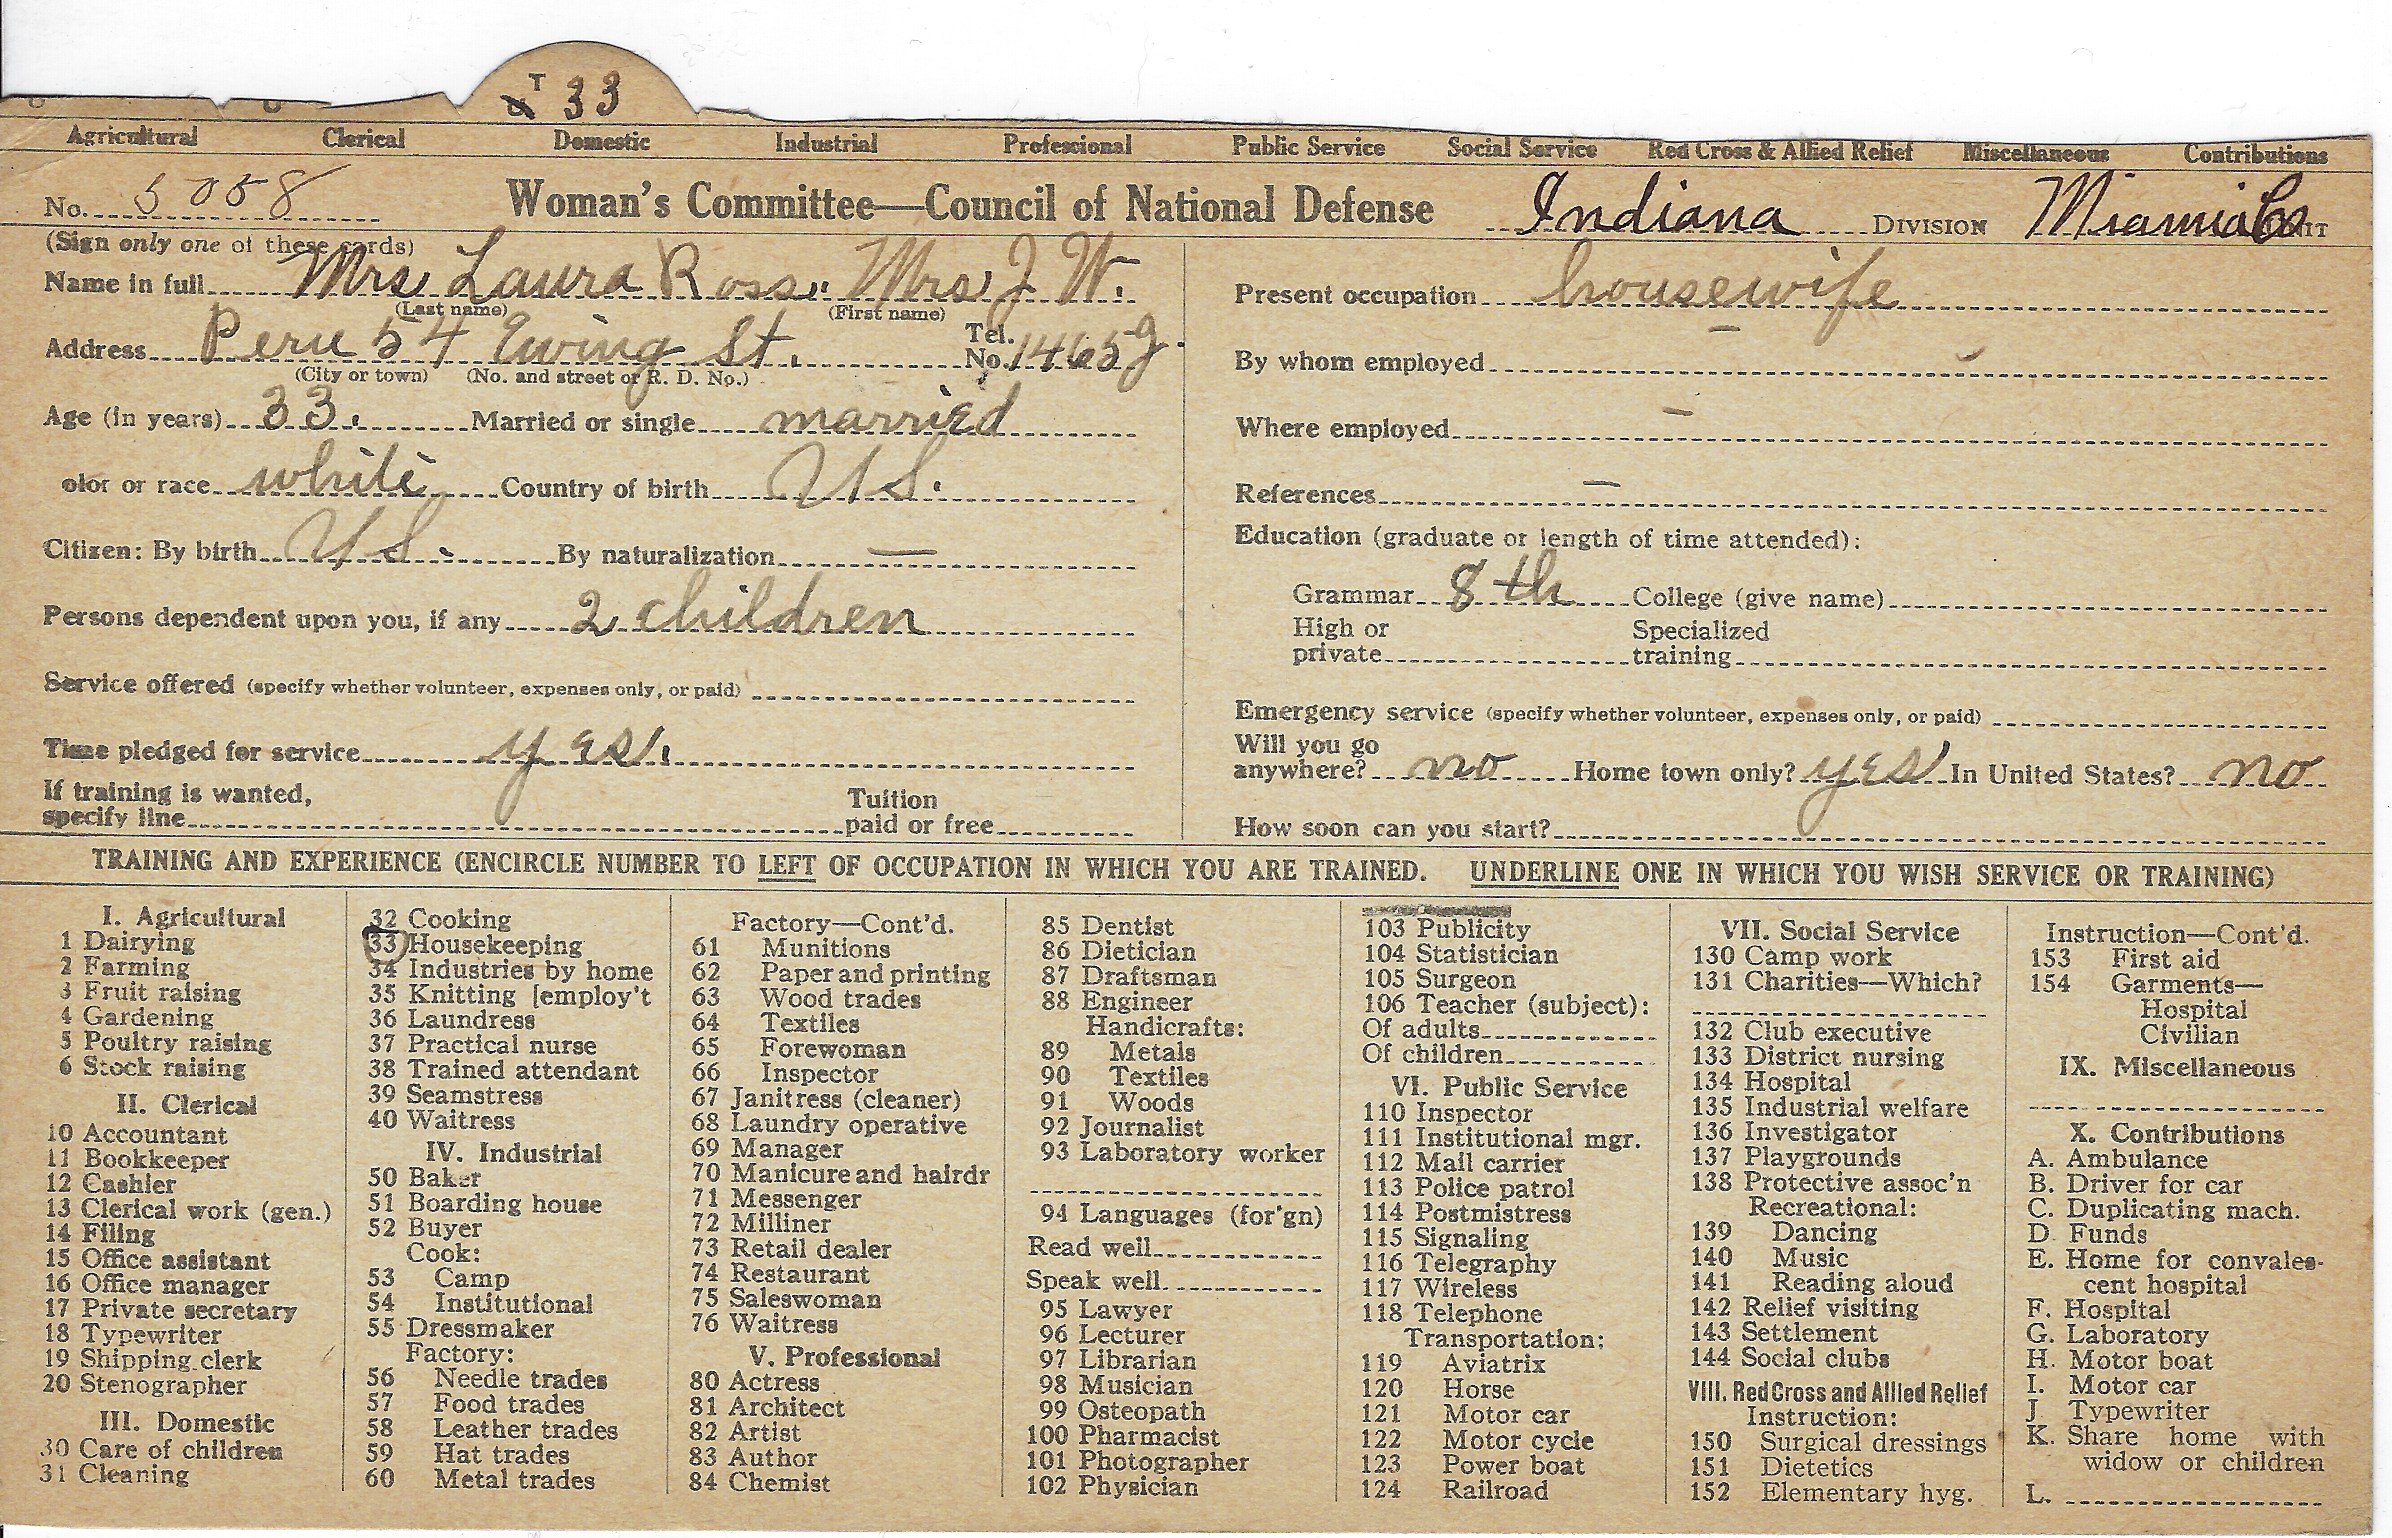 T 33
Agricultural Clerical Domestic Industrial Professional Public Service Social Service Red Cross & Allied Relief Miscellaneous Contributions
No. 5058 Woman's Committee—Council of National Defense Indiana DIVISION Miami Co
(Sign only one of these cards)
Name in full Mrs Laura Ross. Mrs J. W.
(Last name) (First name)
Address Peru 54 Ewing St. Tel. No. 1465J.
(City or town) (No. and street or R. D. No.)
Age (in years) 33. Married or single married
olor or race white Country of birth U S.
Citizen: By birth U S. By naturalization —
Persons dependent upon you, if any 2 children
Service offered (specify whether volunteer, expenses only, or paid)
Time pledged for service yes.
If training is wanted,
specify line Tuition paid or free
Present occupation housewife
By whom employed —
Where employed —
References —
Education (graduate or length of time attended):
Grammar 8th College (give name)
High or private Specialized training
Emergency service (specify whether volunteer, expenses only, or paid)
Will you go anywhere? no Home town only? yes In United States? no
How soon can you start?
TRAINING AND EXPERIENCE (ENCIRCLE NUMBER TO LEFT OF OCCUPATION IN WHICH YOU ARE TRAINED. UNDERLINE ONE IN WHICH YOU WISH SERVICE OR TRAINING)
I. Agricultural
1 Dairying
2 Farming
3 Fruit raising
4 Gardening
5 Poultry raising
6 Stock raising
II. Clerical
10 Accountant
11 Bookkeeper
12 Cashier
13 Clerical work (gen.)
14 Filing
15 Office assistant
16 Office manager
17 Private secretary
18 Typewriter
19 Shipping clerk
20 Stenographer
III. Domestic
30 Care of children
31 Cleaning
32 Cooking
33 Housekeeping
34 Industries by home
35 Knitting [employ't
36 Laundress
37 Practical nurse
38 Trained attendant
39 Seamstress
40 Waitress
IV. Industrial
50 Baker
51 Boarding house
52 Buyer
Cook:
53 Camp
54 Institutional
55 Dressmaker
Factory:
56 Needle trades
57 Food trades
58 Leather trades
59 Hat trades
60 Metal trades
Factory—Cont'd.
61 Munitions
62 Paper and printing
63 Wood trades
64 Textiles
65 Forewoman
66 Inspector
67 Janitress (cleaner)
68 Laundry operative
69 Manager
70 Manicure and hairdr
71 Messenger
72 Milliner
73 Retail dealer
74 Restaurant
75 Saleswoman
76 Waitress
V. Professional
80 Actress
81 Architect
82 Artist
83 Author
84 Chemist
85 Dentist
86 Dietician
87 Draftsman
88 Engineer
Handicrafts:
89 Metals
90 Textiles
91 Woods
92 Journalist
93 Laboratory worker
94 Languages (for'gn)
Read well
Speak well
95 Lawyer
96 Lecturer
97 Librarian
98 Musician
99 Osteopath
100 Pharmacist
101 Photographer
102 Physician
103 Publicity
104 Statistician
105 Surgeon
106 Teacher (subject):
Of adults
Of children
VI. Public Service
110 Inspector
111 Institutional mgr.
112 Mail carrier
113 Police patrol
114 Postmistress
115 Signaling
116 Telegraphy
117 Wireless
118 Telephone
Transportation:
119 Aviatrix
120 Horse
121 Motor car
122 Motor cycle
123 Power boat
124 Railroad
VII. Social Service
130 Camp work
131 Charities—Which?
132 Club executive
133 District nursing
134 Hospital
135 Industrial welfare
136 Investigator
137 Playgrounds
138 Protective assoc'n
Recreational:
139 Dancing
140 Music
141 Reading aloud
142 Relief visiting
143 Settlement
144 Social clubs
VIII. Red Cross and Allied Relief
Instruction:
150 Surgical dressings
151 Dietetics
152 Elementary hyg.
Instruction—Cont'd.
153 First aid
154 Garments—
Hospital
Civilian
IX. Miscellaneous
X. Contributions
A. Ambulance
B. Driver for car
C. Duplicating mach.
D Funds
E. Home for convales-
cent hospital
F. Hospital
G. Laboratory
H. Motor boat
I. Motor car
J Typewriter
K. Share home with
widow or children
L.